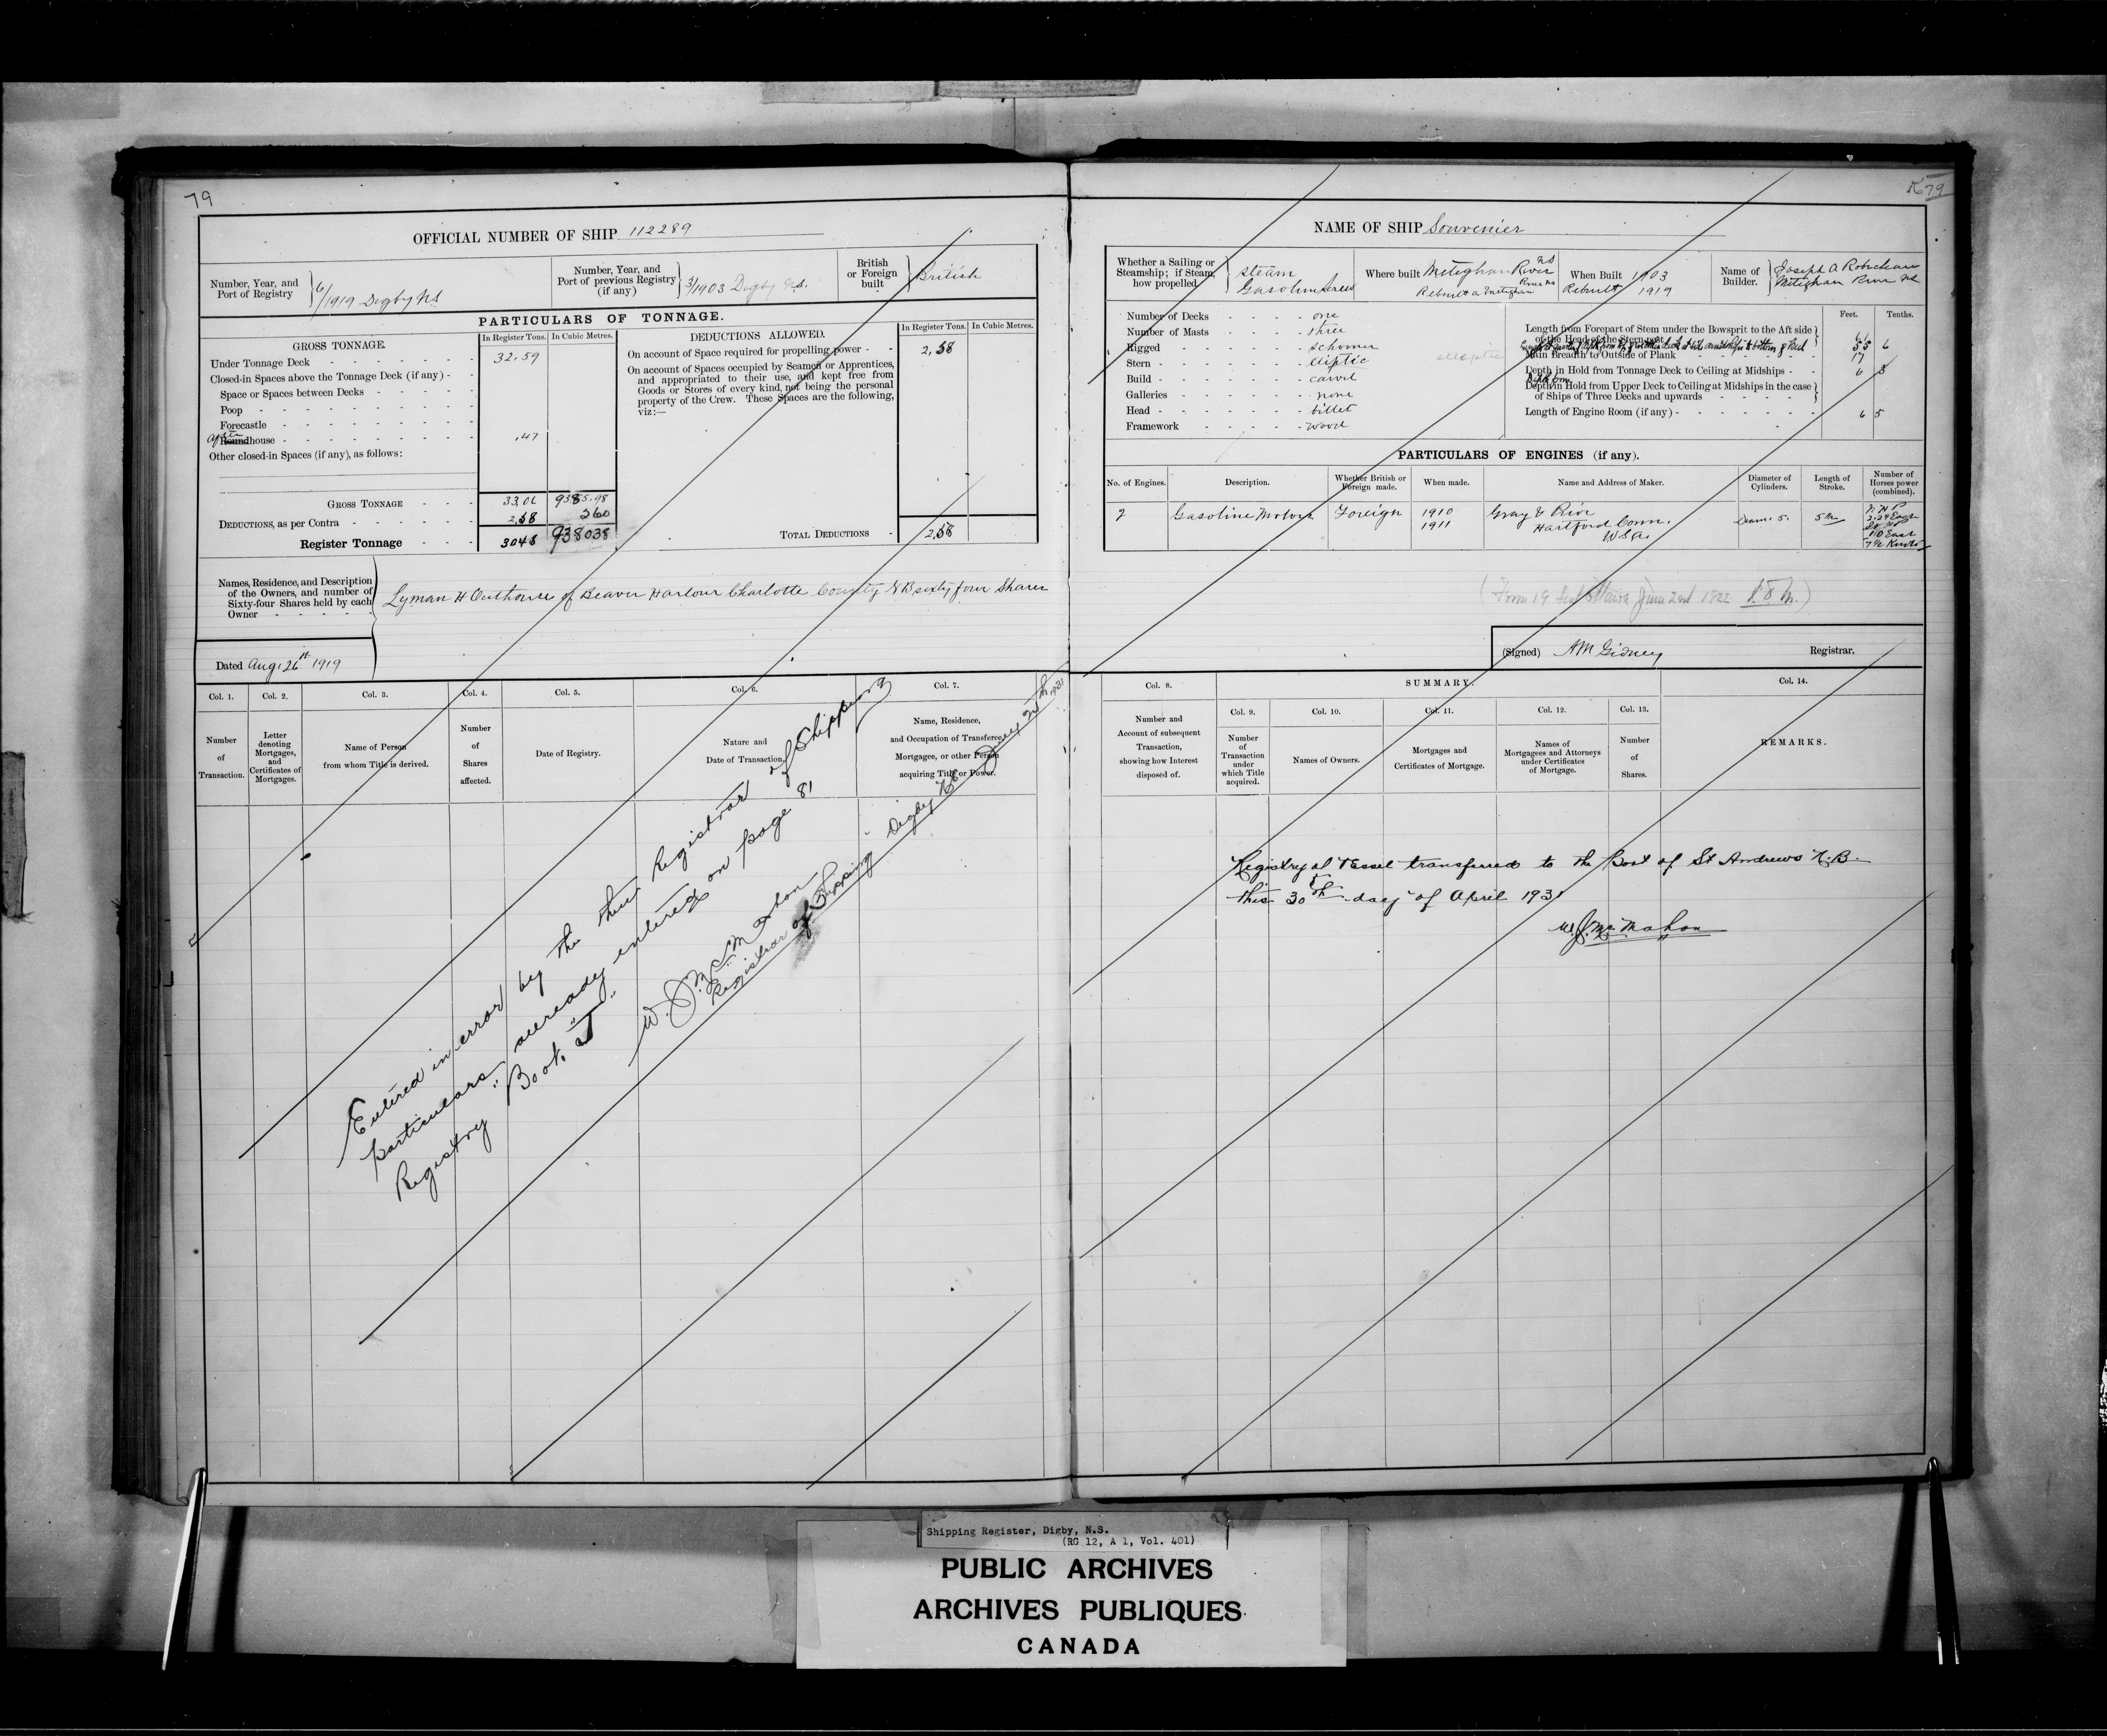 79
OFFICIAL NUMBER OF SHIP 112289
Number, Year, and Port of Registry
6/1919 Digby NS
Number, Year, and Port of previous Registry (if any)
3/1903 Digby N.S.
British or Foreign built
British
PARTICULARS OF TONNAGE.
GROSS TONNAGE.
In Register Tons. In Cubic Metres.
DEDUCTIONS ALLOWED.
In Register Tons. In Cubic Metres.
Under Tonnage Deck 32.59
Closed-in Spaces above the Tonnage Deck (if any)
Space or Spaces between Decks
Poop
Forecastle
Roundhouse .47
Other closed-in Spaces (if any), as follows:
On account of Space required for propelling power 2,58
On account of Spaces occupied by Seamen or Apprentices, and appropriated to their use, and kept free from Goods or Stores of every kind, not being the personal property of the Crew. These Spaces are the following, viz:—
GROSS TONNAGE 33,06 9385.98
DEDUCTIONS, as per Contra 2,58 560
Register Tonnage 3048 938038
TOTAL DEDUCTIONS 2,58
Names, Residence, and Description of the Owners, and number of Sixty-four Shares held by each Owner
Lyman H Outhouse of Beaver Harbour Charlotte County NB sixty four Shares
Dated Aug. 26th 1919
Col. 1. Col. 2. Col. 3. Col. 4. Col. 5. Col. 6. Col. 7.
Number of Transaction.
Letter denoting Mortgages, and Certificates of Mortgages.
Name of Person from whom Title is derived.
Number of Shares affected.
Date of Registry.
Nature and Date of Transaction.
Name, Residence, and Occupation of Transferee, Mortgagee, or other Person acquiring Title or Power.
Entered in error by the then Registrar of Shipping
particulars already entered on page 81
Registry Book "J"
W. J. McMahon
Registrar of Shipping Digby NS
1931
79
NAME OF SHIP Souvenier
Whether a Sailing or Steamship; if Steam, how propelled
Steam
Gasoline Screw
Where built Meteghan River NS
Rebuilt a Meteghan River NS
When Built 1903
Rebuilt 1919
Name of Builder.
Joseph A Robicheau
Meteghan River NS
Number of Decks one
Number of Masts three
Rigged Schooner
Stern Eliptic
Build carvel
Galleries none
Head billet
Framework wood
elliptic
Feet. Tenths.
Length from Forepart of Stem under the Bowsprit to the Aft side of the Head of the Stern post
55 6
Main Breadth to Outside of Plank 17
Depth in Hold from Tonnage Deck to Ceiling at Midships 6 8
Depth in Hold from Upper Deck to Ceiling at Midships in the case of Ships of Three Decks and upwards
Length of Engine Room (if any) 6 5
PARTICULARS OF ENGINES (if any).
No. of Engines. Description. Whether British or Foreign made. When made. Name and Address of Maker. Diameter of Cylinders. Length of Stroke. Number of Horses power (combined).
2 Gasoline Motors Foreign 1910
1911
Gray & Prior
Hartford Conn.
USA.
Diam. 5. 5 in
(Signed) AM Gidney Registrar.
Col. 8. SUMMARY Col. 14.
Col. 9. Col. 10. Col. 11. Col. 12. Col. 13.
Number and Account of subsequent Transaction, showing how Interest disposed of.
Number of Transaction under which Title acquired.
Names of Owners.
Mortgages and Certificates of Mortgage.
Names of Mortgagees and Attorneys under Certificates of Mortgage.
Number of Shares.
REMARKS.
Registry of Vessel transferred to the Port of St Andrews N.B.
this 30th day of April 1931
W. J. McMahon
Shipping Register, Digby, N.S.
(RG 12, A 1, Vol. 401)
PUBLIC ARCHIVES
ARCHIVES PUBLIQUES
CANADA